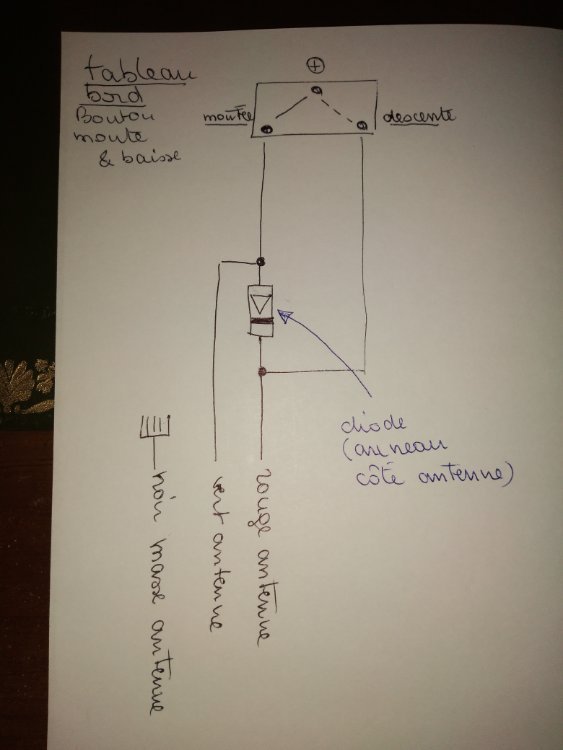 tableau
bord
Bouton
monte
& baisse
+
montée
descente
diode
(anneau
côté antenne)
rouge antenne
vert antenne
noir masse antenne